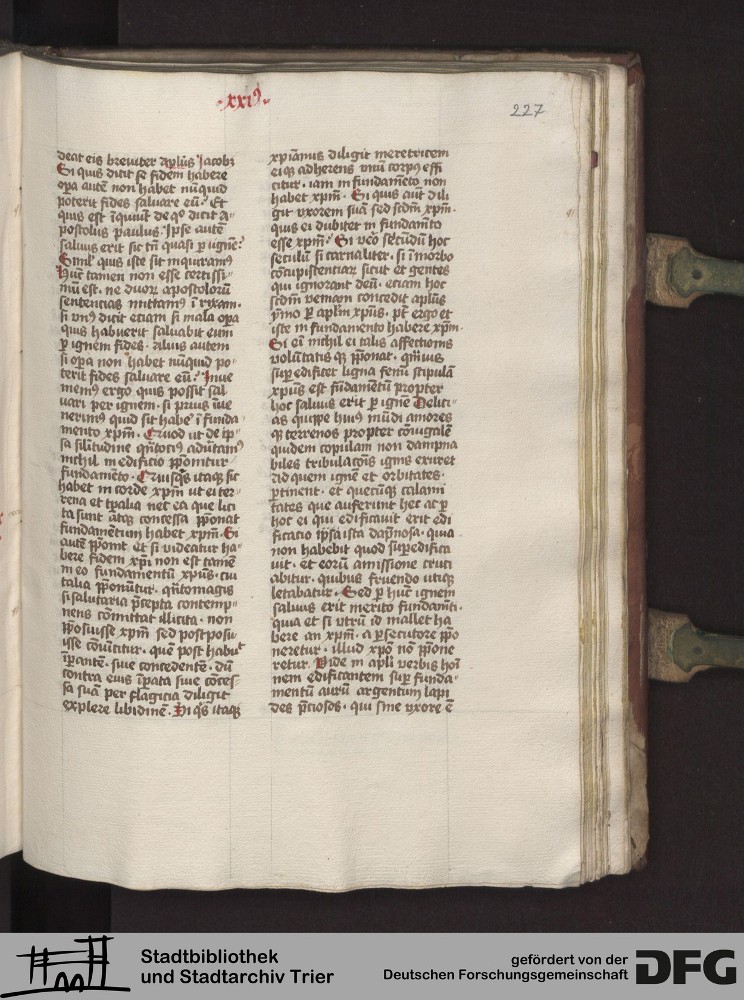 ·xxiꝰ·
227
deat eis breuiter aplūs Jacobꝫ
Si quis dicit se fidem habere
opa autē non habet nūquid
poterit fides saluare eū· Et
quis est
postolus paulus· Ipse autē
saluus erit sic tn̄ quasi ꝑ ignē·
Simul quis iste sit inquiramꝰ
hūc tamen non esse certissi-
mū est· ne duorꝝ apostolorū
sentencias mittamꝰ ī rixam·
si vnꝰ dicit etiam si mala opa
quis habuerit saluabit eum
ꝑ ignem fides· alius autem
si opa non habet nūquid po-
terit fides saluare eū· Inue
niemꝰ ergo quis possit sal
uari per ignem· si prius īue
nerimꝰ quid sit habē ī funda-
mento xpm̄· Quod ut de ip-
sa
nichil in edificio p̄ponitur
fundamēto· Quisqꝫs itaqꝫ sic
habet in corde xpm̄ ut ei ter-
rena et tꝑalia nec ea que lici
ta sunt atqꝫ concessa p̄ponat
fundamentum habet xpm̄· Si
autē p̄ponit et si videatur ha-
bere fidem xpi non est tamē
in eo fundamentū xpūs· cui
talia p̄ponūtur· qn̄tomagis
si salutaria p̄cepta contemp-
nens cōmittat illicita· non
p̄posuisse xpm̄ sed postposu-
isse cōuīcitur· quē post habuit
īꝑantē· siue concedentē· dū
contra eius īpata siue cōces-
sa suā per flagicia diligit
explere libidinē· Si qͥs itaqꝫ
xpianus diligit meretricem
eiqꝫ adherens vnū corpꝰ effi
citur· iam in fundamēto non
habet xpm̄· Si quis aut dili
git vxorem suā sed scdm̄ xpm̄·
quis ei dubitet in fundam̄to
esse xpm̄· Si vero secūdū hoc
seculū si carnaliter· si ī morbo
cōcupistentiaꝝ sicut et gentes
qui ignorant deū· eciam hoc
scdm̄ veniam concedit aplūs
ymo ꝑ aplm̄ xpūs· pt̄ ergo et
iste in fundamento habere xpm̄·
Si eī nichil ei talis affectionis
volūtatis qꝫ p̄ponat· qm̄uis
suꝑ edificet ligna fenū stipulā
xpūs est fūdamētū propter
hoc saluus erit ꝑ ignē Delici-
as quippe huiꝰ mūdi amores
qꝫ terrenos propter cōiugalē
quidem copulam non dampna
biles tribulacōis ignis exuret
Ad quem ignē et orbitates·
ꝑtinent· et quecūqꝫ calami
tates que auferunt hec ac ꝑ
hoc ei qui edificauit erit edi
ficacio ip̄a ista dāpnosa· quia
non habebit quod suꝑedifica
uit· et eorū amissione cruci
abitur· quibus fruendo utiqꝫ
letabatur· Sed ꝑ hūc ignem
saluus erit merito fundam̄ti·
quia et si vtrū id mallet ha
bere an xpm̄· a ꝑsecutore p̄po
neretur· illud xpo nō p̄pone
retur· Uide in apli verbis hoī
nem edificantem suꝑ funda-
mentū aurū argentum lapi
des p̄ciosos· qui sine vxore ē
Stadtbibliothek
und Stadtarchiv Trier
gefördert von der
Deutschen Forschungsgemeinschaft
DFG